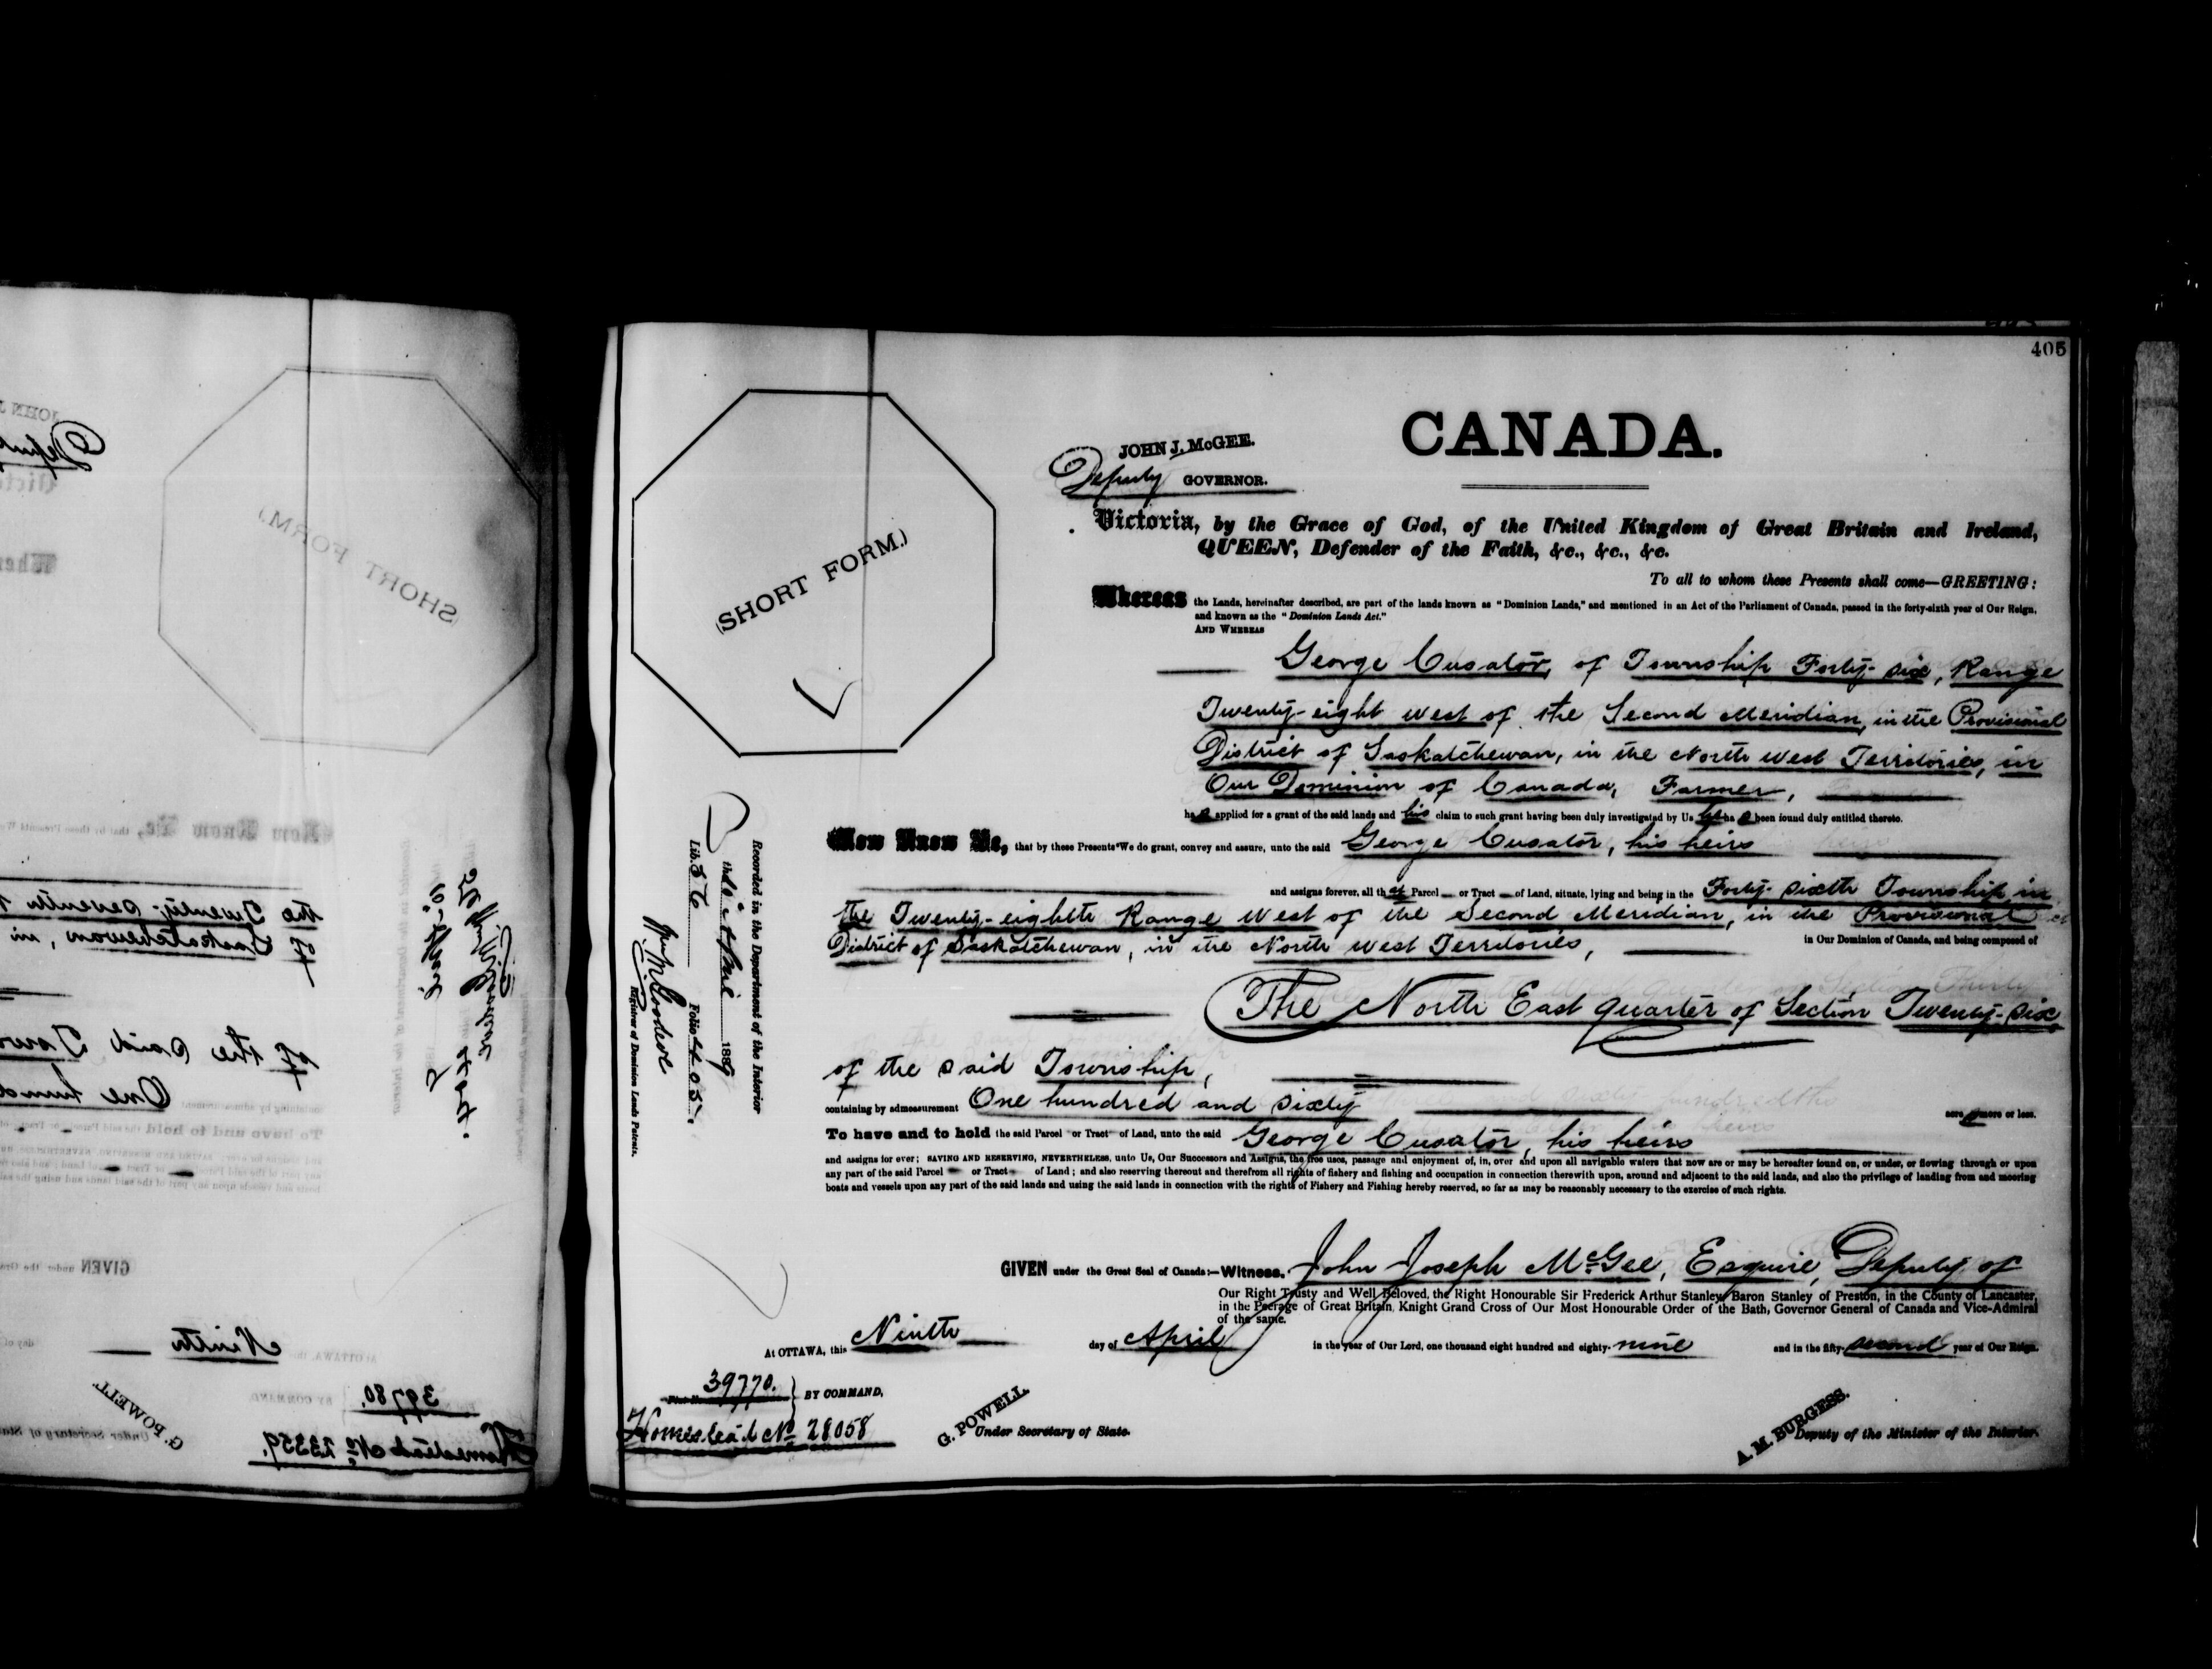 405
CANADA.
JOHN J. McGEE.
Deputy GOVERNOR.
(SHORT FORM.)
Victoria, by the Grace of God, of the United Kingdom of Great Britain and Ireland,
QUEEN, Defender of the Faith, &c., &c., &c.
To all to whom these Presents shall come—GREETING:
Whereas the Lands, hereinafter described, are part of the lands known as "Dominion Lands," and mentioned in an Act of the Parliament of Canada, passed in the forty-sixth year of Our Reign,
and known as the "Dominion Lands Act."
AND WHEREAS
George Cusator, of Township Forty-six, Range
Twenty-eight west of the Second Meridian, in the Provisional
District of Saskatchewan, in the North West Territories, in
Our Dominion of Canada, Farmer,
has applied for a grant of the said lands and his claim to such grant having been duly investigated by Us he has been found duly entitled thereto.
Now Know Ye, that by these Presents We do grant, convey and assure, unto the said George Cusator, his heirs
and assigns forever, all that Parcel or Tract of Land, situate, lying and being in the Forty-sixth Township, in
the Twenty-eighth Range West of the Second Meridian, in the Provisional
District of Saskatchewan, in the North West Territories, in Our Dominion of Canada, and being composed of
The North East quarter of Section Twenty-six
of the said Township,
containing by admeasurement One hundred and sixty acres more or less.
To have and to hold the said Parcel or Tract of Land, unto the said George Cusator, his heirs
and assigns for ever; SAVING AND RESERVING, NEVERTHELESS, unto Us, Our Successors and Assigns, the free uses, passage and enjoyment of, in, over and upon all navigable waters that now are or may be hereafter found on, or under, or flowing through or upon
any part of the said Parcel or Tract of Land; and also reserving thereout and therefrom all rights of fishery and fishing and occupation in connection therewith upon, around and adjacent to the said lands, and also the privilege of landing from and mooring
boats and vessels upon any part of the said lands and using the said lands in connection with the rights of Fishery and Fishing hereby reserved, so far as may be reasonably necessary to the exercise of such rights.
GIVEN under the Great Seal of Canada:—Witness, John Joseph McGee, Esquire, Deputy of
Our Right Trusty and Well Beloved, the Right Honourable Sir Frederick Arthur Stanley, Baron Stanley of Preston, in the County of Lancaster,
in the Peerage of Great Britain, Knight Grand Cross of Our Most Honourable Order of the Bath, Governor General of Canada and Vice-Admiral
of the same.
At OTTAWA, this Ninth day of April in the year of Our Lord, one thousand eight hundred and eighty-nine and in the fifty-second year of Our Reign.
39770. BY COMMAND,
Homestead No 28058
G. POWELL.
Under Secretary of State.
A. M. BURGESS.
Deputy of the Minister of the Interior.
Recorded in the Department of the Interior
this 10th April 1889
Lib. 36 Folio 405.
Registrar of Dominion Lands Patents.
(SHORT FORM.)
the Twenty-seventh
of Saskatchewan, in
of the said Town
One hund
To have and to hold the said
GIVEN under the
Ninth
39780.
Homestead No 23359.
G. POWELL.
Under Secretary of State